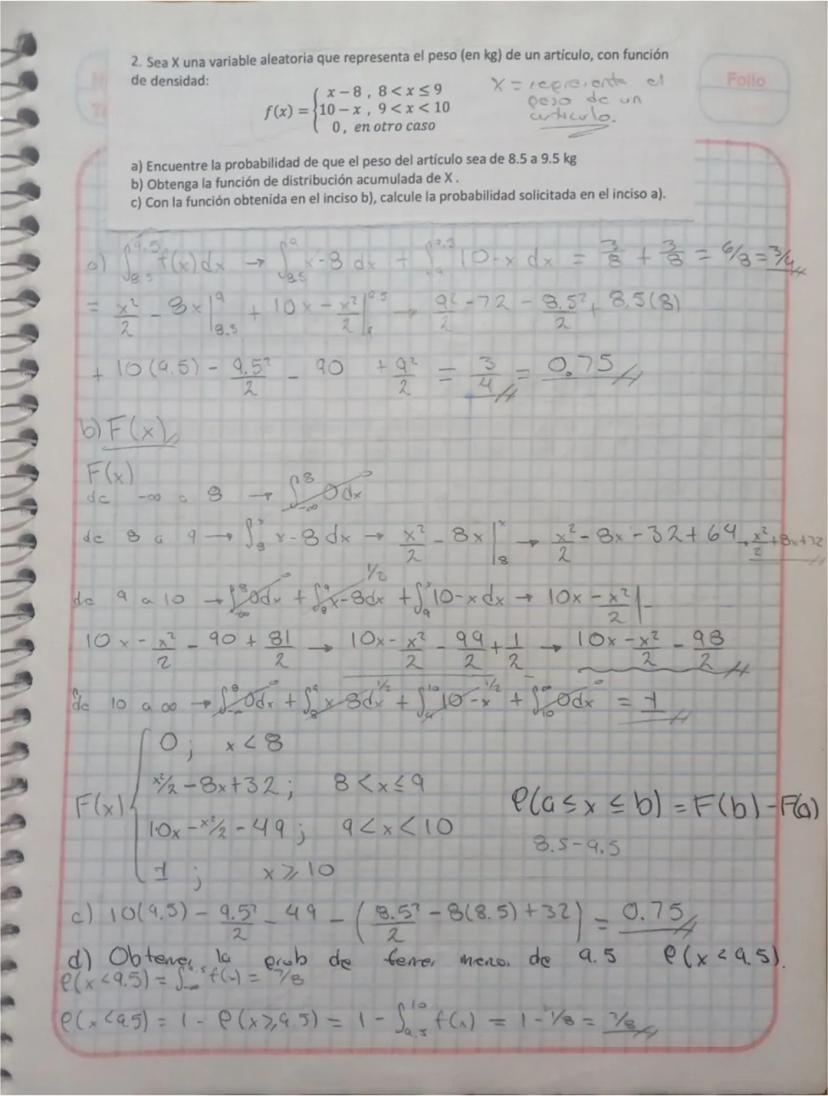 2. Sea X una variable aleatoria que representa el peso (en kg) de un artículo, con función
de densidad:
f(x) = { x − 8 , 8 < x ≤ 9
10 − x , 9 < x < 10
0, en otro caso
X = representa el
peso de un
artículo.
Folio
a) Encuentre la probabilidad de que el peso del artículo sea de 8.5 a 9.5 kg
b) Obtenga la función de distribución acumulada de X .
c) Con la función obtenida en el inciso b), calcule la probabilidad solicitada en el inciso a).
a) ∫_8.5^9.5 f(x)dx → ∫_8.5^9 x-8 dx + ∫ 10-x dx = 3/8 + 3/8 = 6/8 = 3/4
= x²/2 - 8x |_8.5^9 + 10x - x²/2 |^9.5 → 9²/2 - 72 - 8.5²/2 + 8.5(8)
+ 10(9.5) - 9.5²/2 - 90 + 9²/2 = 3/4 = 0.75
b) F(x)
F(x)
de -∞ a 8 → ∫_-∞^8 0dx
de 8 a 9 → ∫_8^x x-8 dx → x²/2 - 8x |_8^x → x²/2 - 8x - 32 + 64 → x²/2 + 8x + 32
de 9 a 10 → ∫_-∞^8 0dx + ∫_8^9 x-8dx 1/2 + ∫_9^x 10-x dx → 10x - x²/2 |
10x - x²/2 - 90 + 81/2 → 10x - x²/2 - 99/2 + 1/2 → 10x - x²/2 - 98/2
de 10 a ∞ → ∫_-∞^8 0dx + ∫_8^9 x-8dx 1/2 + ∫_9^10 10-x 1/2 + ∫_10^∞ 0dx = 1
F(x) { 0 ; x < 8
x²/2 - 8x + 32 ; 8 < x ≤ 9
10x - x²/2 - 49 ; 9 < x < 10
1 ; x ≥ 10
P(a ≤ x ≤ b) = F(b) - F(a)
8.5 - 9.5
c) 10(9.5) - 9.5²/2 - 49 - (8.5²/2 - 8(8.5) + 32) = 0.75
d) Obtener la prob de tener menos de 9.5 P(x < 9.5).
P(x < 9.5) = ∫ f(x) = 7/8
P(x < 9.5) = 1 - P(x ≥ 9.5) = 1 - ∫_9.5^10 f(x) = 1 - 1/8 = 7/8